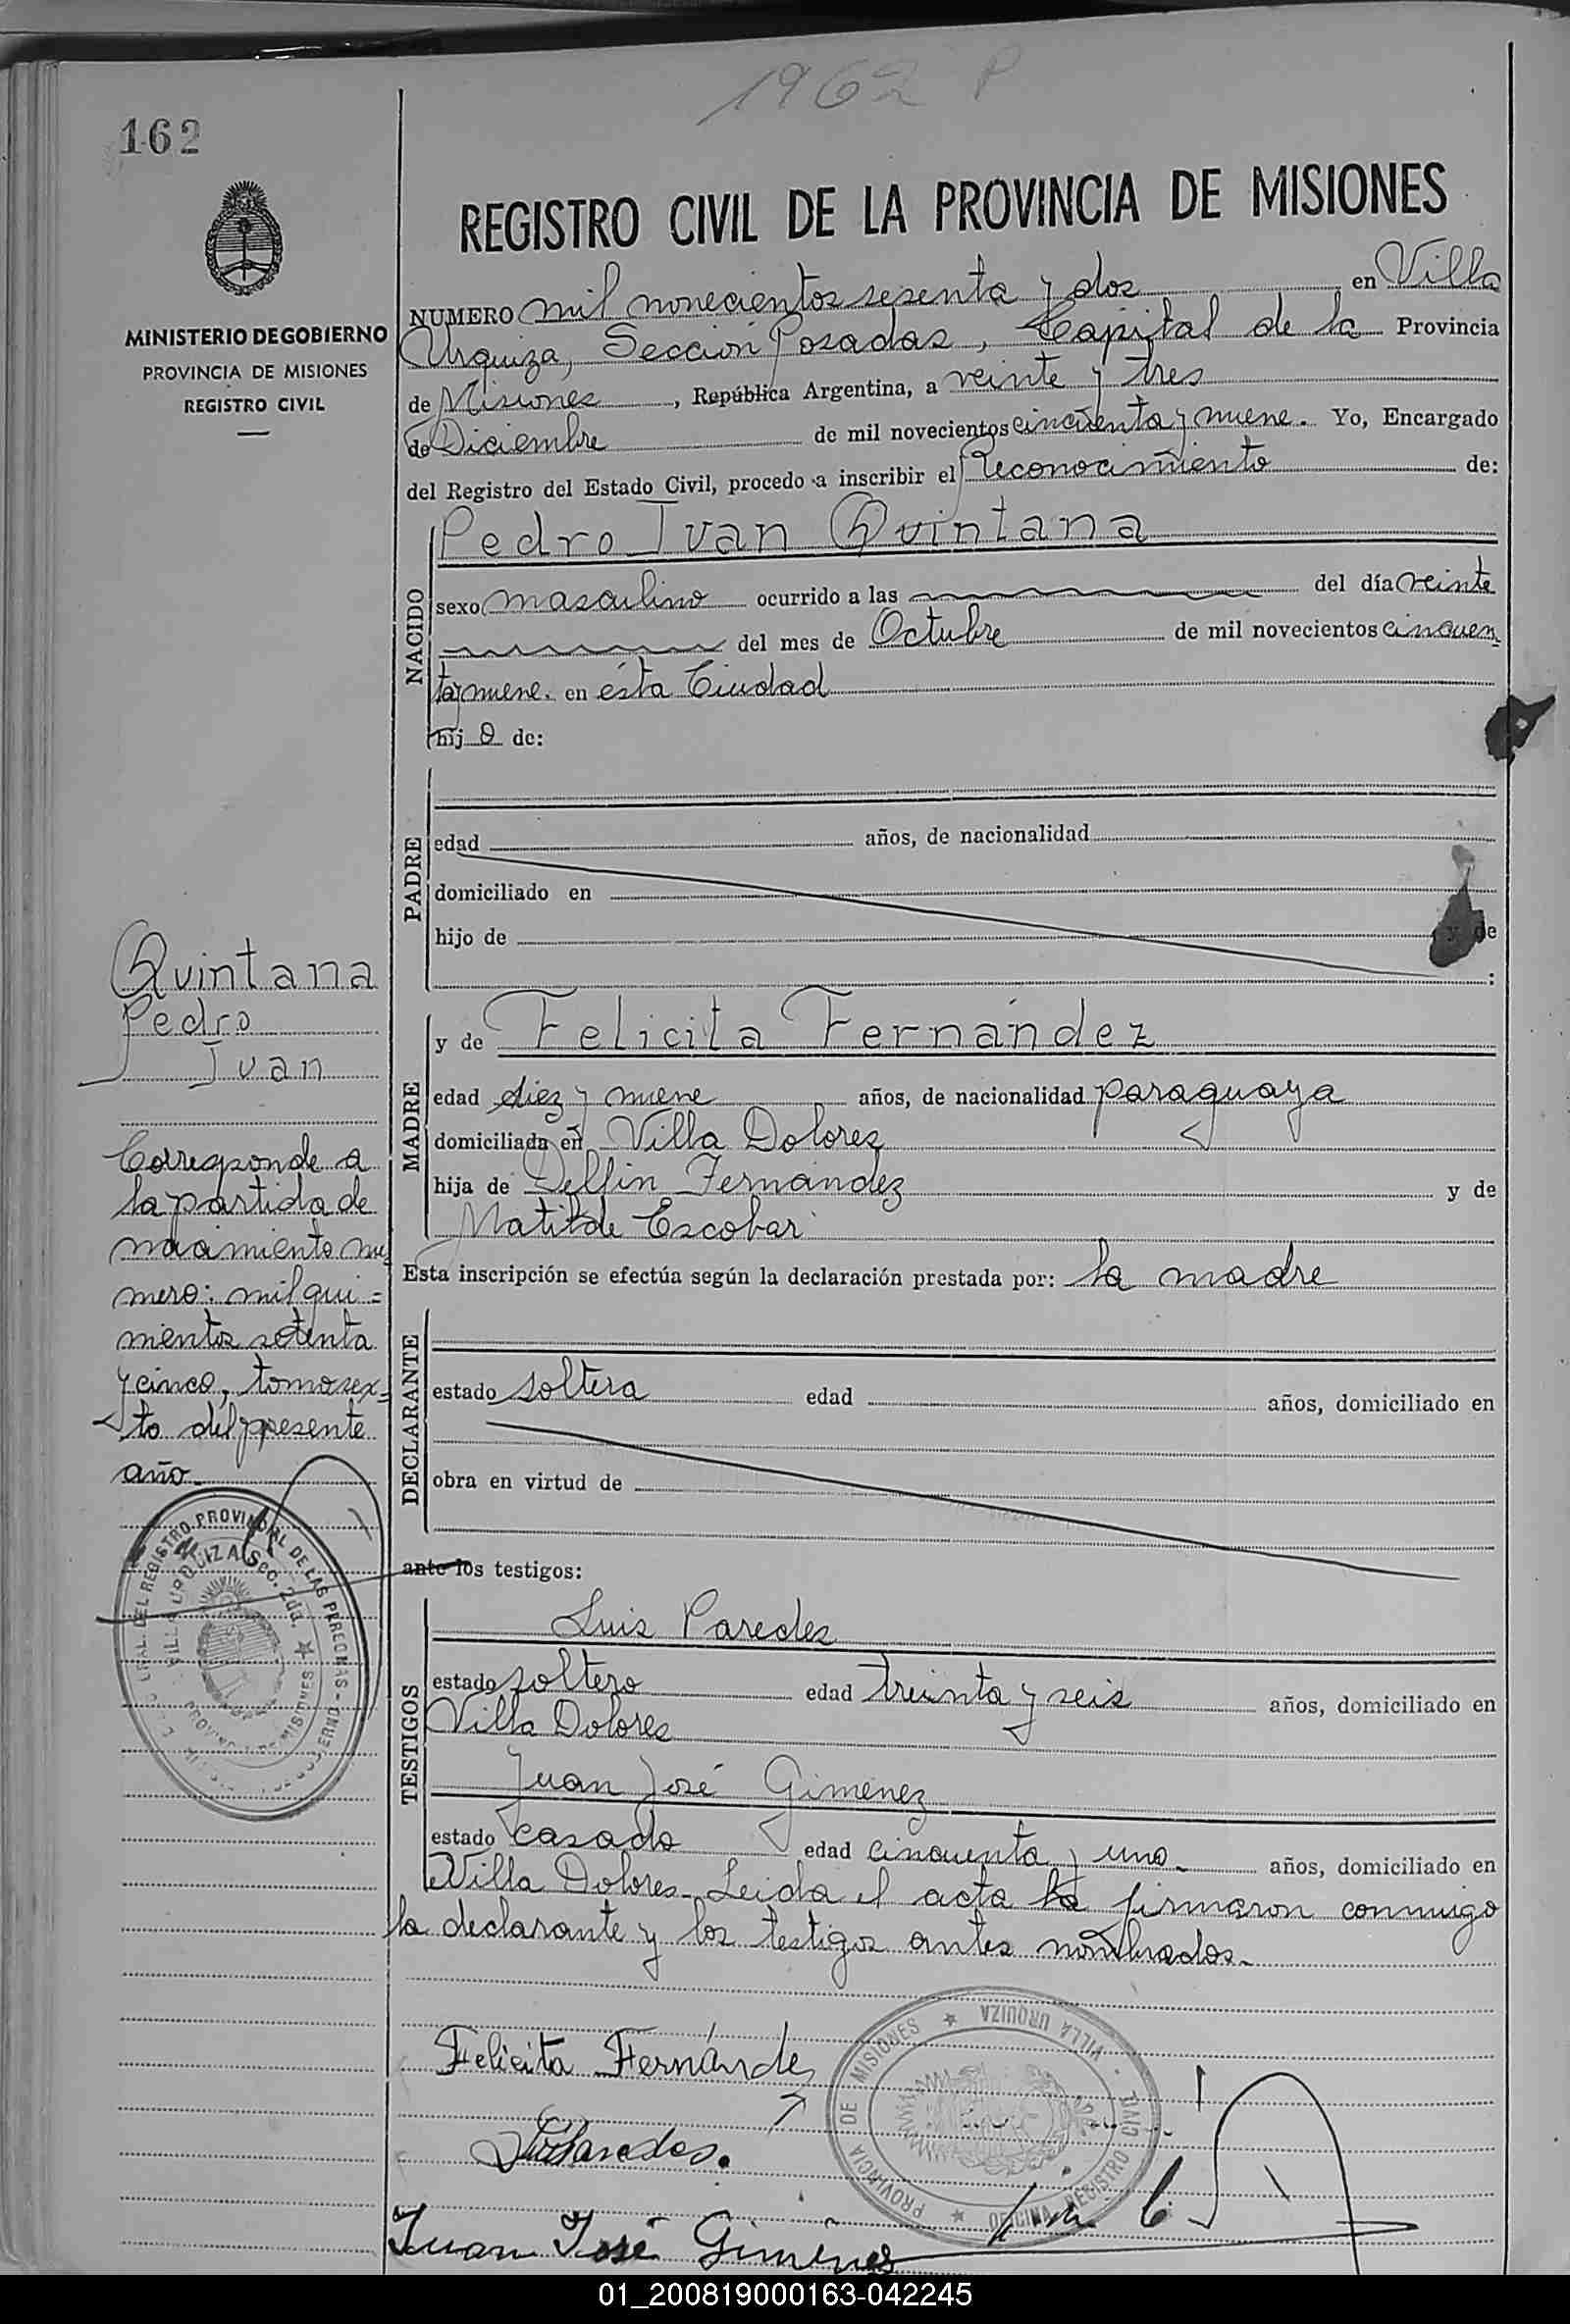 1962 P
162
MINISTERIO DE GOBIERNO
PROVINCIA DE MISIONES
REGISTRO CIVIL
REGISTRO CIVIL DE LA PROVINCIA DE MISIONES
NUMERO mil novecientos sesenta y dos en Villa
Urquiza, Sección Posadas, Capital de la Provincia
de Misiones, República Argentina, a veinte y tres
de Diciembre de mil novecientos cincuenta y nueve. Yo, Encargado
del Registro del Estado Civil, procedo a inscribir el Reconocimiento de:
NACIDO
Pedro Ivan Quintana
sexo masculino ocurrido a las del día veinte
del mes de Octubre de mil novecientos cincuen
ta y nueve. en ésta Ciudad
hijo de:
PADRE
edad años, de nacionalidad
domiciliado en
hijo de y de
:
MADRE
y de Felicita Fernández
edad diez y nueve años, de nacionalidad paraguaya
domiciliada en Villa Dolores
hija de Delfin Fernández y de
Matilde Escobar
Esta inscripción se efectúa según la declaración prestada por: la madre
DECLARANTE
estado soltera edad años, domiciliado en
obra en virtud de
ante los testigos:
TESTIGOS
Luis Paredes
estado soltero edad treinta y seis años, domiciliado en
Villa Dolores
Juan José Gimenez
estado casado edad cincuenta y uno años, domiciliado en
Villa Dolores - Leida el acta la firmaron conmigo
la declarante y los testigos antes nombrados.
Quintana
Pedro
Ivan
Corresponde a
la partida de
nacimiento nu
mero: mil qui=
nientos setenta
y cinco, tomo sex=
to del presente
año.
REGISTRO PROVINCIAL DE LAS PERSONAS
VILLA URQUIZA Sec. 2da.
PROVINCIA DE MISIONES
Felicita Fernández
Luis Paredes.
Juan José Gimenes
PROVINCIA DE MISIONES ★ VILLA URQUIZA
OFICINA REGISTRO CIVIL
01_200819000163-042245